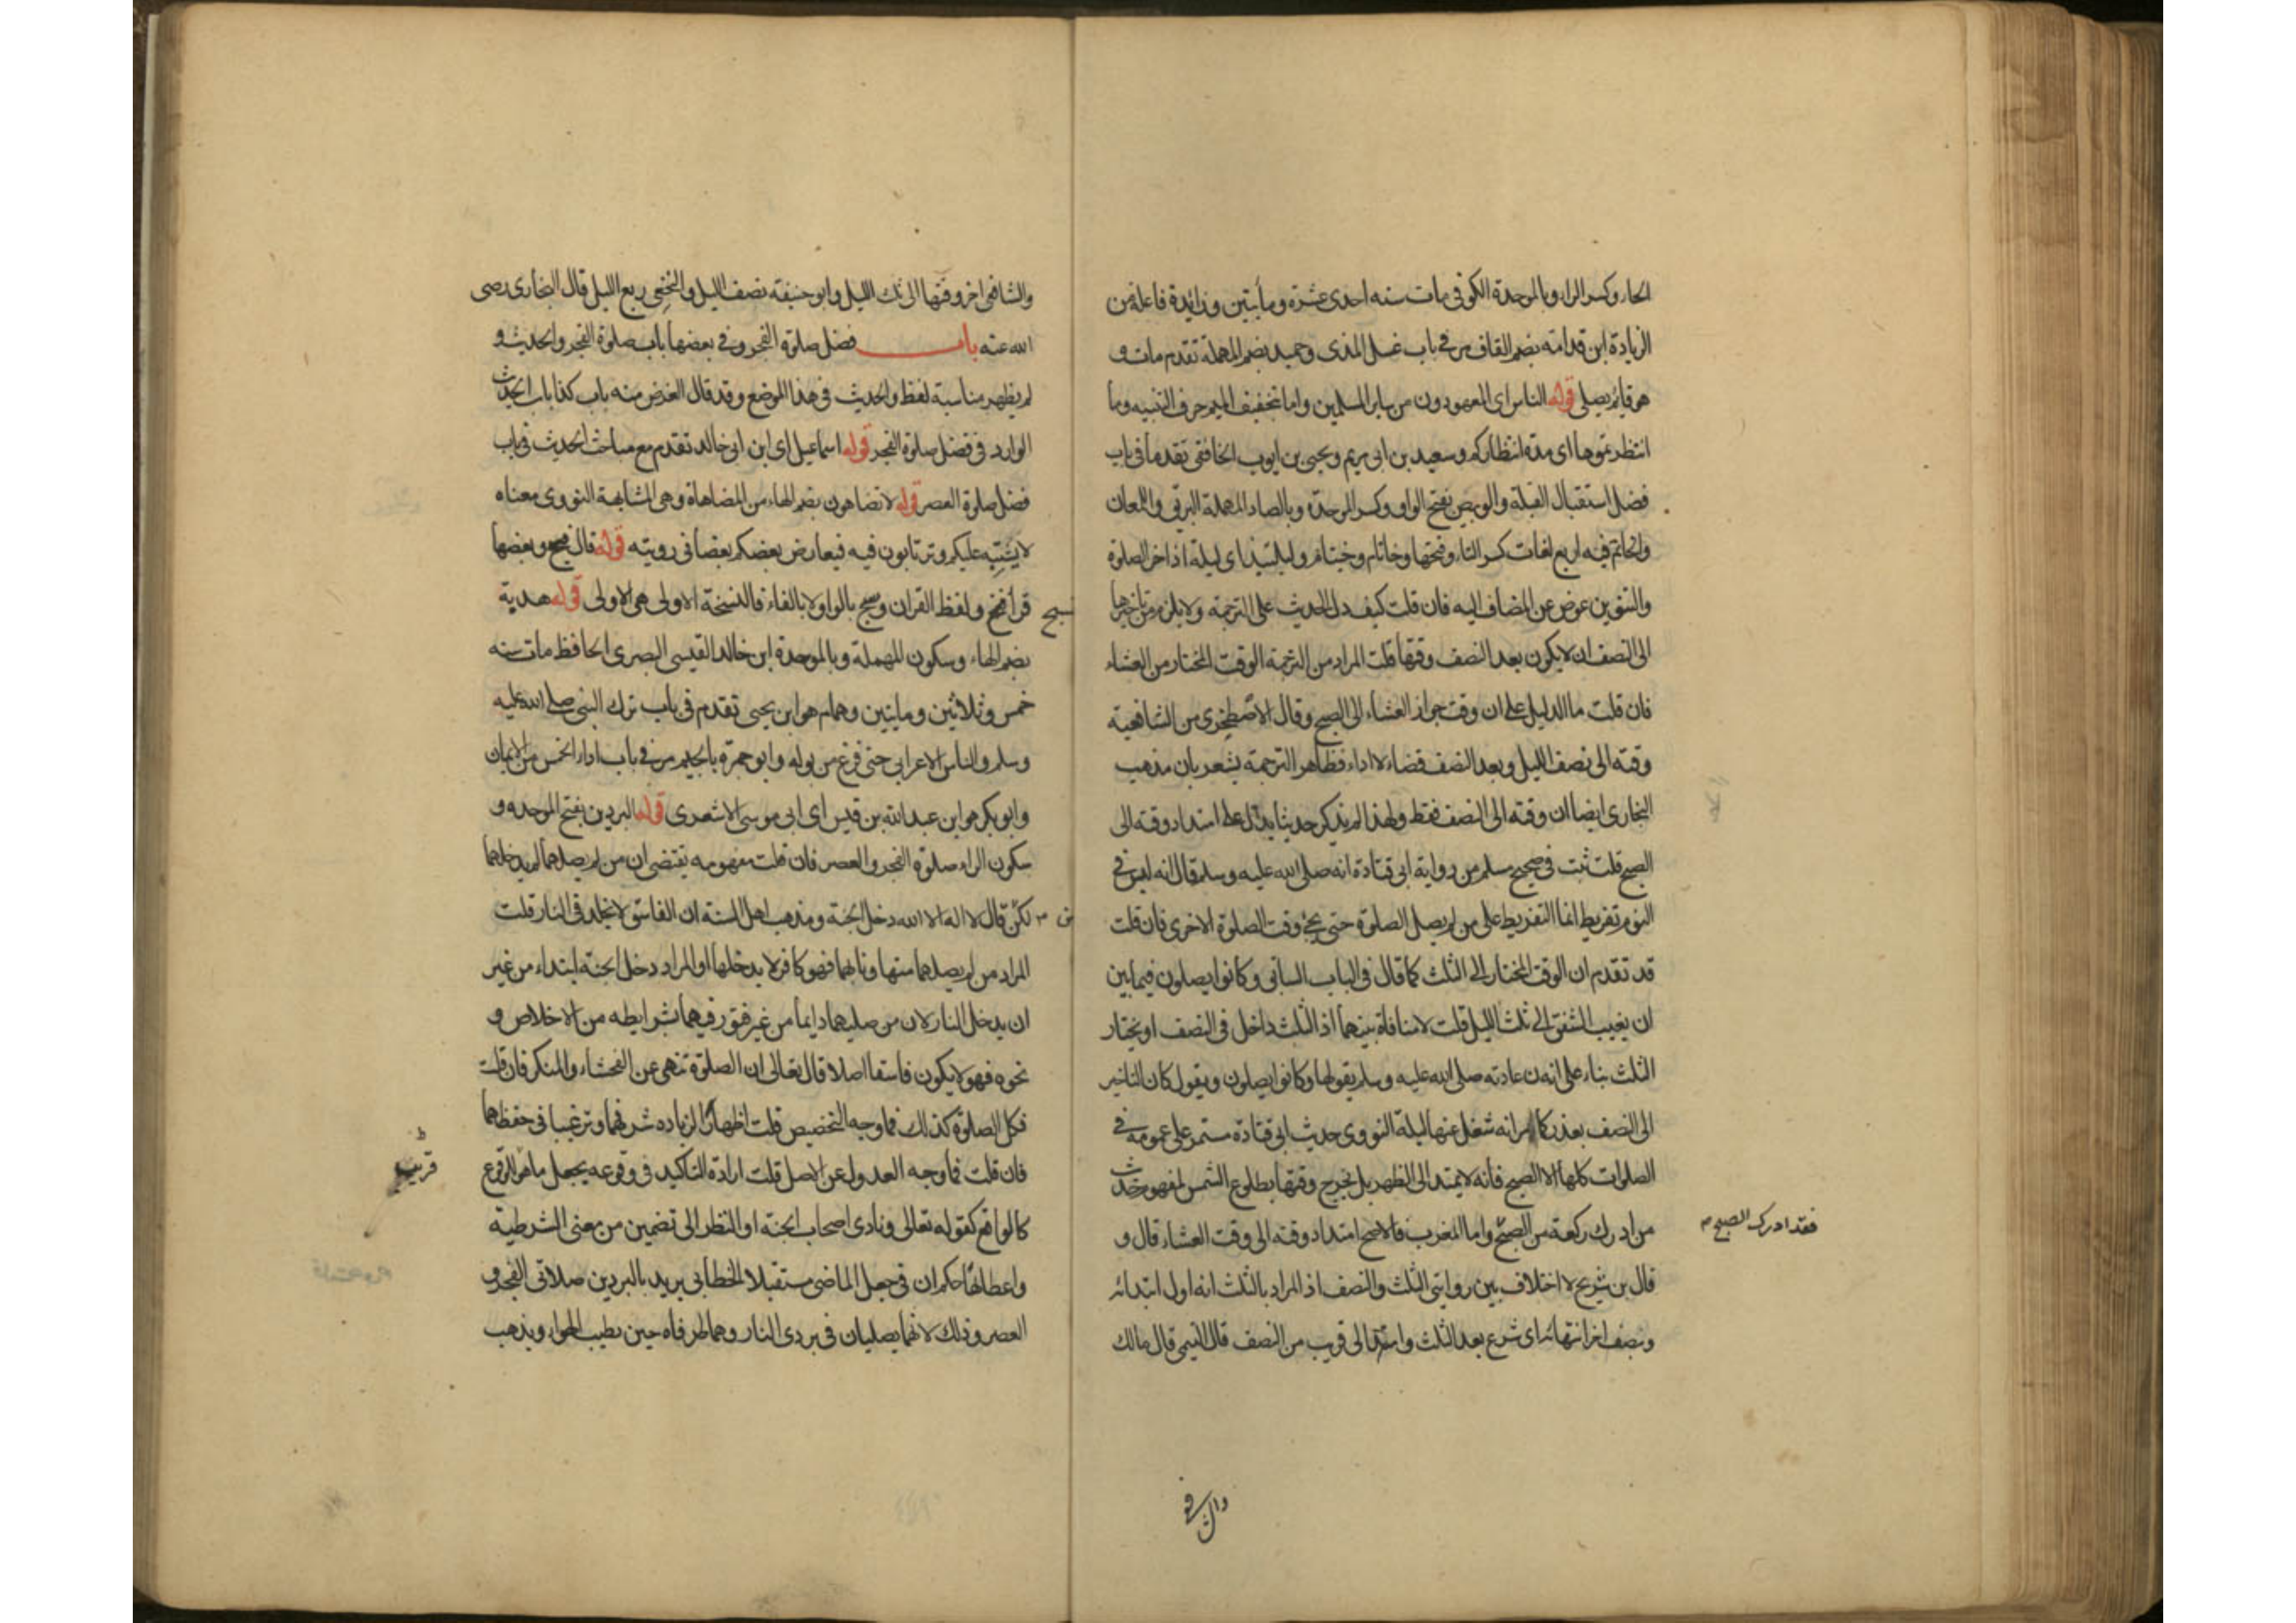 الحاء وكسر الراء وبالموحدة الكوفي مات سنه احدى عشرة ومأيتين وزائدة فاعلة من
الزيادة ابن قدامة بضم القاف مر في باب غسل المذى وحميد بضم المهملة تقدم مات و
هو قايم يصلى قوله الناس اى المعهودون من ساير المسلمين واما بتخفيف الميم حرف التنبيه وما
انتظرتموها اى مدة انتظاركم وسعيد بن ابى مريم ويحيى بن ايوب الغافقى تقدما في باب
فضل استقبال القبلة والوبيص بفتح الواو وكسر الموحدة وبالصاد المهملة البرق واللمعان
والخاتم فيه اربع لغات كسر التاء وفتحها وخاتام وخيتام وليلتئذ اى ليلة اذ اخر الصلوة
والتنوين عوض عن المضاف اليه فان قلت كيف دل الحديث على الترجمة ولا يلزم من تاخيرها
الى النصف ان لا يكون بعد النصف وقتها قلت المراد من الترجمة الوقت المختار من العشاء
فان قلت ما الدليل على ان وقت جواز العشاء الى الصبح وقال الاصطخرى من الشافعية
وقته الى نصف الليل وبعد النصف قضاء لا اداء فظاهر الترجمة يشعر بان مذهب
البخارى ايضا ان وقته الى النصف فقط ولهذا لم يذكر حديثا يدل على امتداد وقته الى
الصبح قلت ثبت في صحيح مسلم من رواية ابى قتادة انه صلى الله عليه وسلم قال انه ليس في
النوم تفريط انما التفريط على من لم يصل الصلوة حتى يجئ وقت الصلوة الاخرى فان قلت
قد تقدم ان الوقت المختار الى الثلث كما قال في الباب السابق وكانوا يصلون فيما بين
ان يغيب الشفق الى ثلث الليل قلت لا منافاة بينهما اذ الثلث داخل في النصف او نختار
الثلث بناء على انه عادته صلى الله عليه وسلم بقولها وكانوا يصلون ويقول كان التاخير
الى النصف بعذر كما مر انه شغل عنها ليلة النووى حديث ابى قتادة مستمر على عمومه في
الصلوات كلها الا الصبح فانه لا يمتد الى الظهر بل يخرج وقتها بطلوع الشمس لمفهوم حديث
من ادرك ركعة من الصبح واما المغرب فالاصح امتداد وقته الى وقت العشاء قال و
فقد ادرك الصبح م
قال بن شريح لا اختلاف بين روايتى الثلث والنصف اذ المراد بالثلث انه اول ابتدائه
ونصف اخر انتهائه اى شرع بعد الثلث وامتد الى قريب من النصف قال التيمى قال مالك
والشافعى اخر وقتها الى ثلث الليل وابو حنيفة نصف الليل والنخعى ربع الليل قال البخارى رضى
الله عنه باب فضل صلوة الفجر وفي بعضها باب صلوة الفجر والحديث و
لم يظهر مناسبة لفظ والحديث في هذا الموضع وقد قال الغرض منه باب كذا باب الحديث
الوارد في فضل صلوة الفجر قوله اسماعيل اى ابن ابى خالد تقدم مع مباحث الحديث في باب
فضل صلوة العصر قوله لا تضاهون بضم الهاء من المضاهاة وهى المشابهة النووى معناه
لا يشتبه عليكم وترتابون فيه فيعارض بعضكم بعضا في رويته قوله قال فسبح وبعضها
قرأ فسبح ولفظ القران وسبح بالواو لا بالفاء فالنسخة الاولى هى الاولى قوله هدبة
بضم الهاء وسكون المهملة وبالموحدة ابن خالد القيسى البصرى الحافظ مات سنه
خمس وثلاثين ومايتين وهمام هو ابن يحيى تقدم في باب ترك النبى صلى الله عليه
وسلم والناس الاعرابى حتى فرغ من بوله وابو جمرة بالجيم مر في باب اداء الخمس من الايمان
وابو بكر هو ابن عبد الله بن قيس اى ابى موسى الاشعرى قوله البردين بفتح الموحده و
سكون الراء صلوة الفجر والعصر فان قلت مفهومه يقتضى ان من لم يصلهما لم يدخلها
لكن قال لا اله الا الله دخل الجنة ومذهب اهل السنة ان الفاسق لا يخلد في النار قلت
المراد من لم يصلهما منها ونا بهما فهو كافر لا يدخلها او المراد دخل الجنة ابتداء من غير
ان يدخل النار لان من صليهما دايما من غير فتور فيهما بشرايطه من الاخلاص و
نحوه فهو لا يكون فاسقا اصلا قال تعالى ان الصلوة تنهى عن الفحشاء والمنكر فان قلت
فكل الصلوة كذلك فما وجه التخصيص قلت اظهارا لزياده شرفهما وترغيبا في حفظهما
فان قلت فما وجه العدول عن الاصل قلت ارادة التاكيد في وقوعه يجعل ما هو للوقوع
كالواقع كقوله تعالى ونادى اصحاب الجنة او النظر الى تضمين من معنى الشرطية
واعطائها حكم ان في جعل الماضى مستقبلا الخطابى يريد بالبردين صلاتى الفجر و
العصر وذلك لانهما يصليان في بردى النار وهما طرفاه حين يطيب الهواء ويذهب